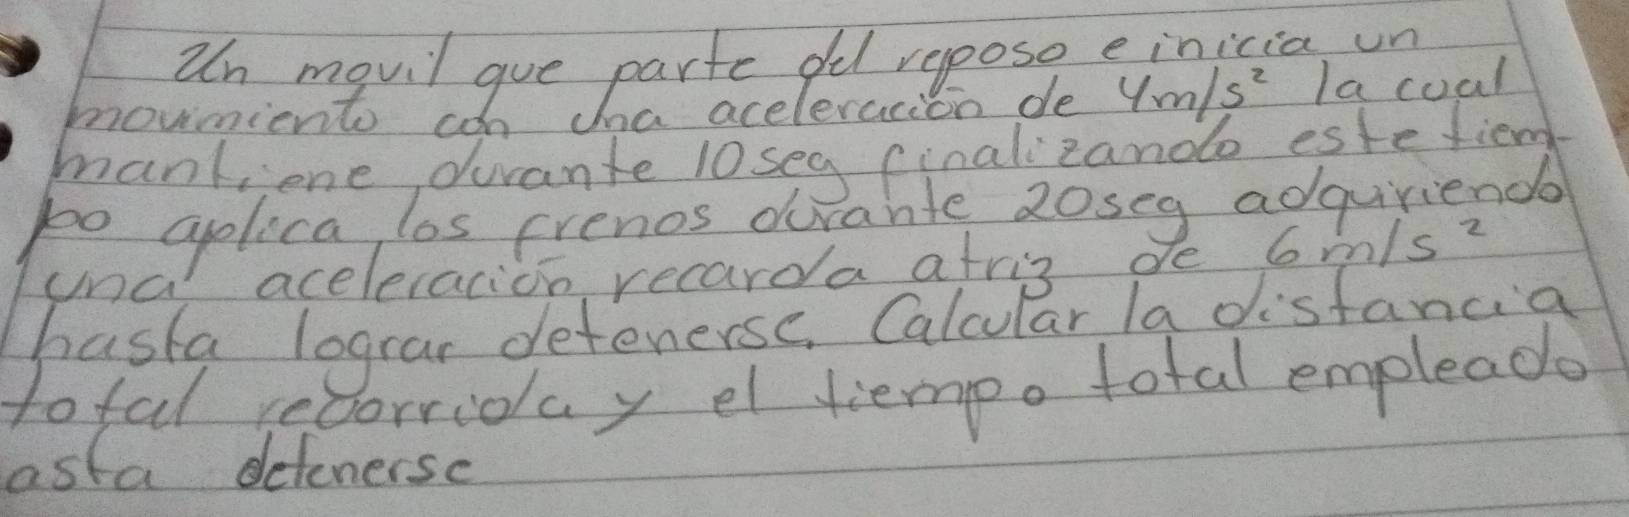 Un movil que parte del reposo e inicia un
movimiento con una aceleración de 4m/s² la cual
mantiene durante 10seg finalizando este tiem
po aplica los frenos durante 20seg adquiriendo
una aceleración recarda atriz de 6m/s²
hasta lograr detenerse. Calcular la distancia
total recorrida y el tiempo total empleado
asta detenerse